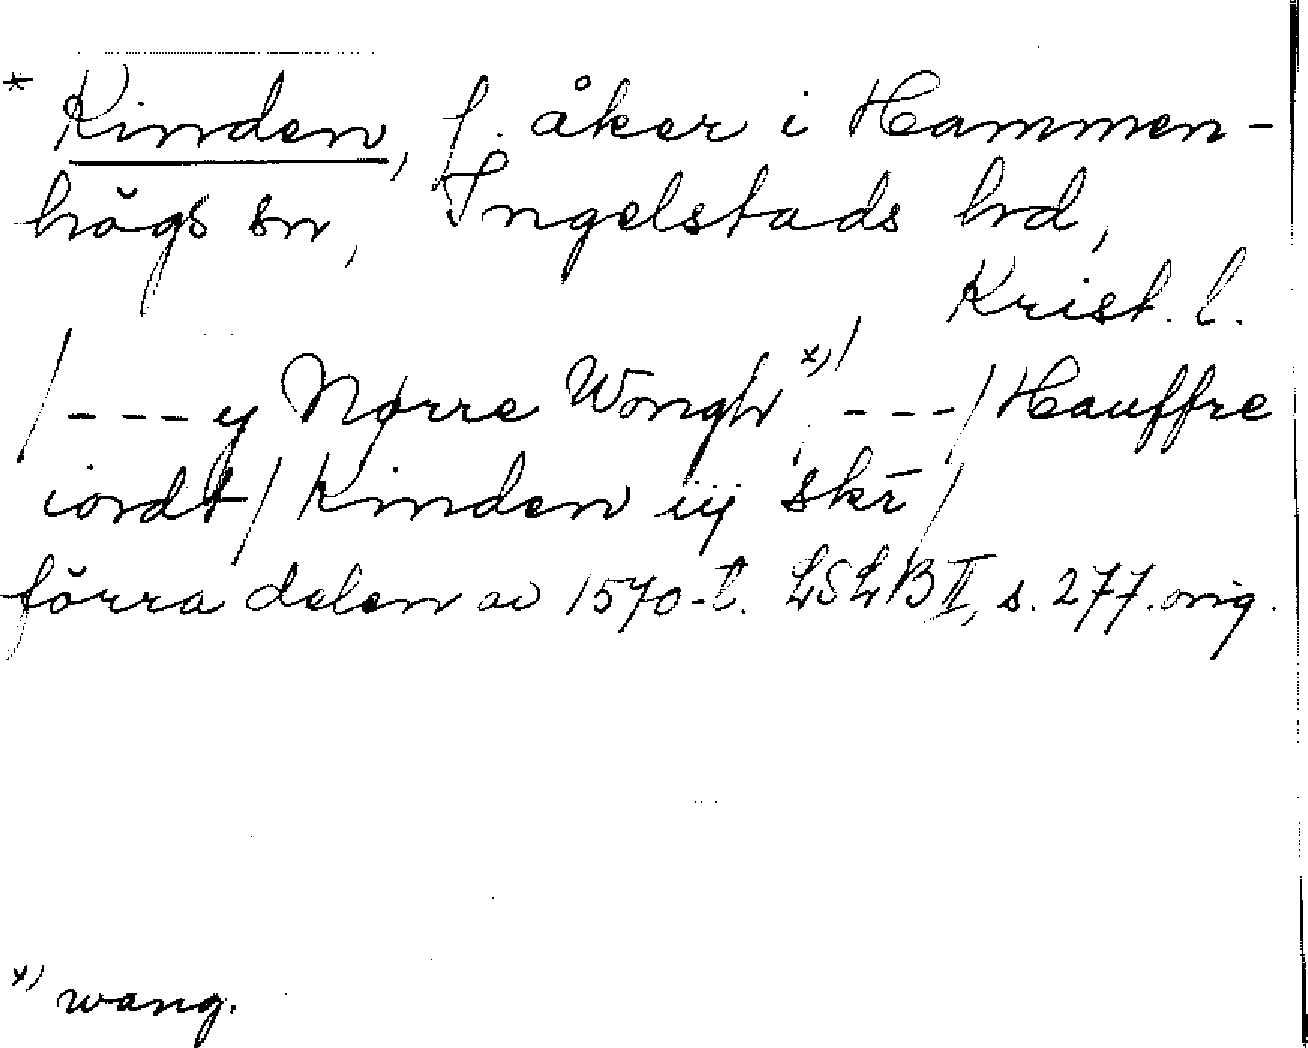 * Kinden, f. åker i Hammen-
högs sn, Ingelstads hd,
Krist. l.
/---y Nørre Wongh *)/, ---/Hauffre
iordt/ Kinden iij skr̄/
förra delen av 1570-t. LSLB II, s. 277. orig.
*) wang.